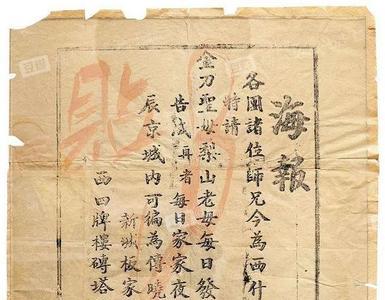 海報
各團諸位師兄今為西什
特請
金刀聖母梨山老母每日發
告成再者每日家家夜
辰京城內可編為傳曉
新城板家
西四牌樓磚塔
貼